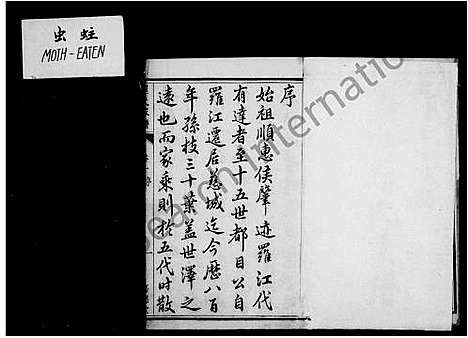 虫蛀
MOTH-EATEN
序
始祖順惠侯肇迹羅江代
有達者至十五世都目公自
羅江遷居慈城迄今歷八百
年孫枝三十葉蓋世澤之
遠也而家乘則於五代時散
Search International